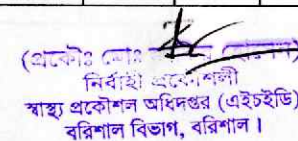 (প্রকৌঃ মোঃ
নির্বাহী প্রকৌশলী
স্বাস্থ্য প্রকৌশল অধিদপ্তর (এইচইডি)
বরিশাল বিভাগ, বরিশাল।